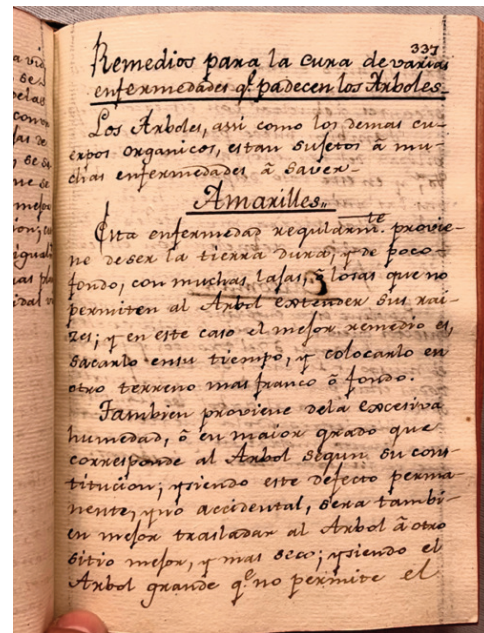 337
Remedios para la cura de varias
enfermedades q.e padecen los Arboles.
Los Arboles, assi como los demas cu-
erpos organicos, estan sujetos â mu-
chas enfermedades â saver-
Amarilles,,
Esta enfermedad regularm.te provie-
ne deser la tierra dura, y de poco
fondo, con muchas lajas, ô losas que no
permiten al Arbol extender sus rai-
zes; y en este caso el mejor remedio es,
sacarlo ensu tiempo, y colocarlo en
otro terreno mas franco ô fondo.
Tambien proviene dela excesiva
humedad, ô en maior grado que
corresponde al Arbol segun su cons-
titucion; ysiendo este defecto perma-
nente, yno accidental, sera tambi-
en mejor trasladar al Arbol â otro
sitio mejor, y mas seco; ysiendo el
Arbol grande q.e no permite el